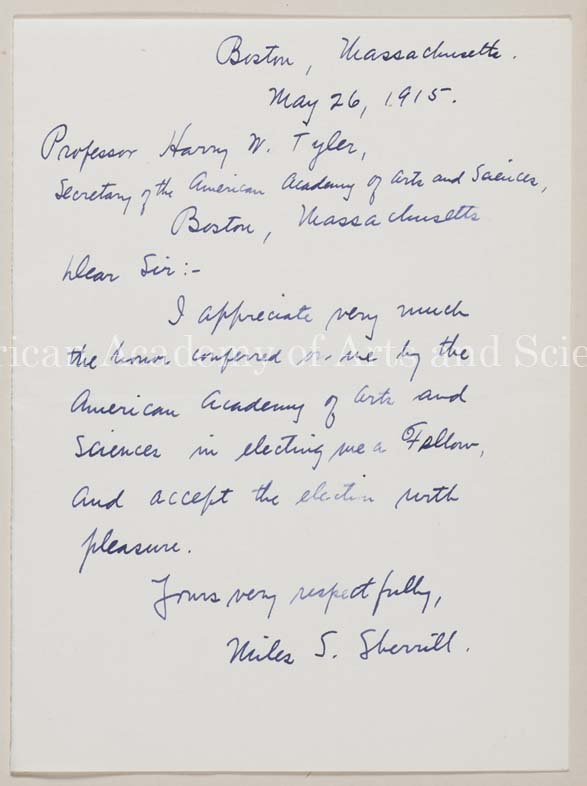 Boston, Massachusetts.
May 26, 1915.
Professor Harry W. Tyler,
Secretary of the American Academy of Arts and Sciences,
Boston, Massachusetts
Dear Sir:-
I appreciate very much
the honor conferred on me by the
American Academy of Arts and
Sciences in electing me a Fellow,
and accept the election with
pleasure.
Yours very respectfully,
Miles S. Sherrill.
rican Academy of Arts and Scie